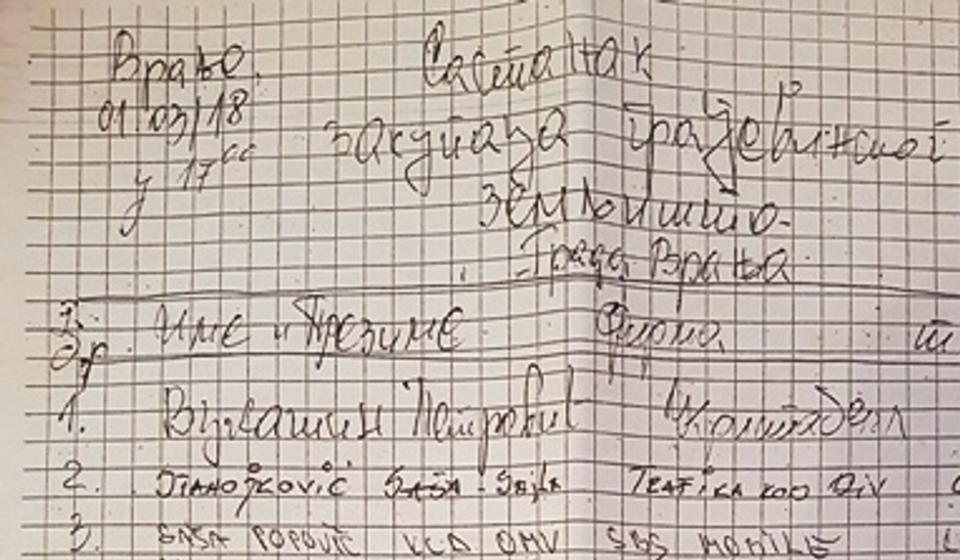 Врање,
01.03/18
у 17⁰⁰
Састанак
закупаца грађевинског
земљишта-
-Града Врања
Р.
бр. Име и Презиме Фирма
1. Вукашин Петровић
2. STANOJKOVIĆ SAŠA - TRAFIKA KOD DIV
3. SAŠA POPOVIĆ KOD OMV SBS MOBILE